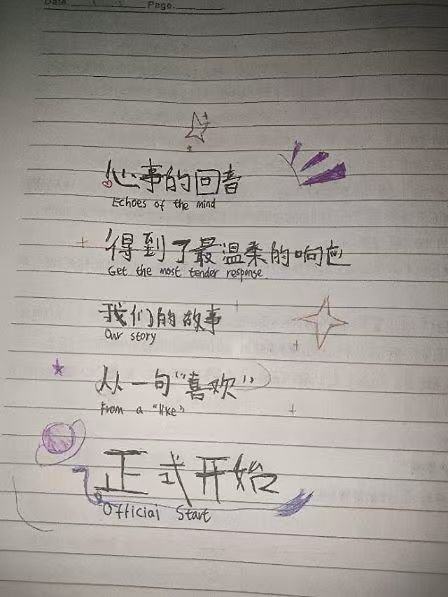 Date. Page.
心事的回音
Echoes of the mind
得到了最温柔的响应
Get the most tender response
我们的故事
Our story
从一句“喜欢”
From a "like"
正式开始
Official Start